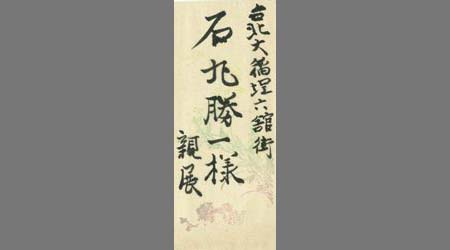 台北大稲埕六舘街
石丸勝一様
親展